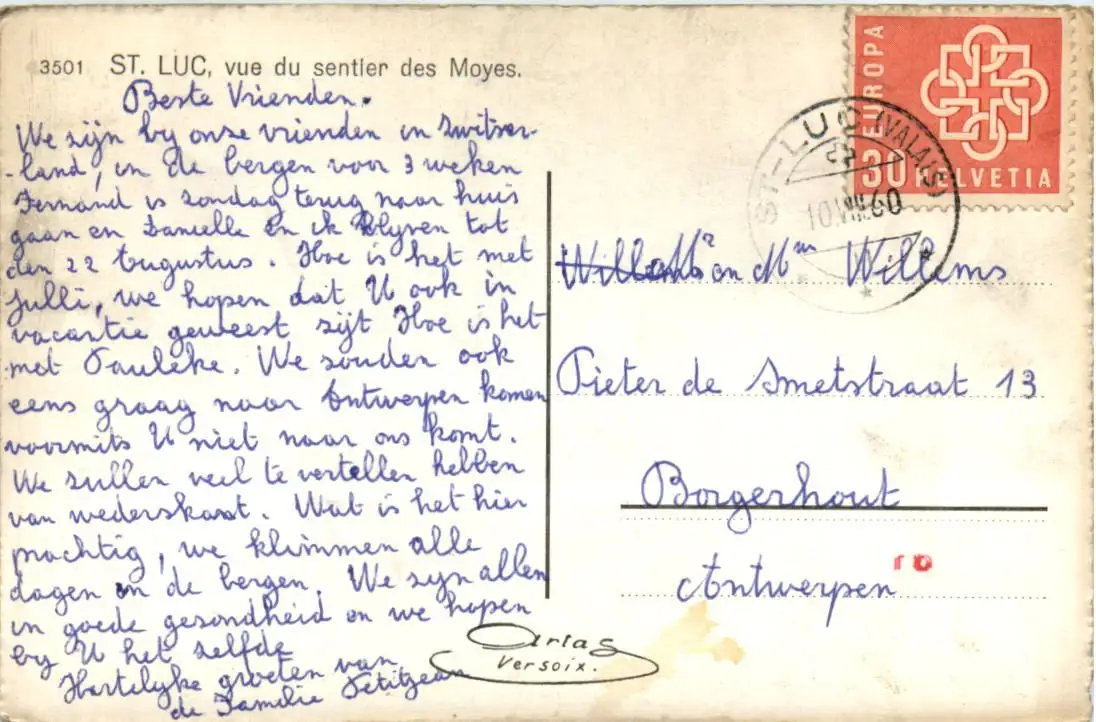 3501 ST. LUC, vue du sentier des Moyes.
Beste Vrienden.
We sijn by onse vrienden in Switser-
-land, in de bergen voor 3 weken
Fernand is sondag terug naar huis
gaan en Danielle en ik blyven tot
den 22 Augustus. Hoe is het met
julli, we hopen dat U ook in
vacantie geweest sijt Hoe is het
met Pauleke. We souden ook
eens graag naar Antwerpen komen
voormits U niet naar ons komt.
We sullen veel te vertellen hebben
van wederskast. Wat is het hier
prachtig, we klimmen alle
dagen in de bergen. We syn allen
in goede gesondheid en we hopen
by U het selfde
Hartelyke groeten van
de Familie Petitjean
EUROPA
30 HELVETIA
ST-LUC (VALAIS)
10.VIII.60
Mr en Mme Willems
Pieter de Smetstraat 13
Borgerhout
Antwerpen
10
Artas
Versoix.